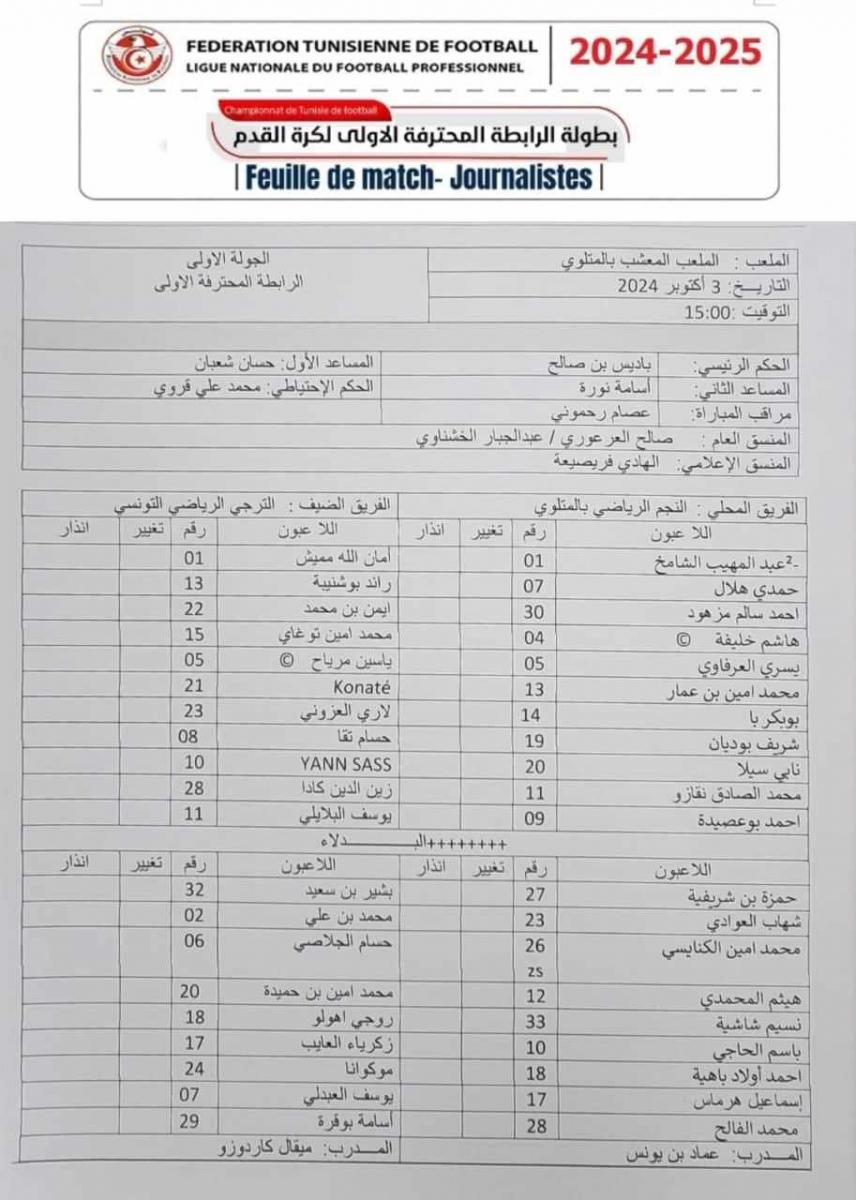 FEDERATION TUNISIENNE DE FOOTBALL
LIGUE NATIONALE DU FOOTBALL PROFESSIONNEL
2024-2025
Championnat de Tunisie de football
بطولة الرابطة المحترفة الاولى لكرة القدم
| Feuille de match- Journalistes |
الملعب : الملعب المعشب بالمتلوي الجولة الاولى
التاريـــخ: 3 أكتوبر 2024 الرابطة المحترفة الاولى
التوقيت :15:00
الحكم الرئيسي: باديس بن صالح المساعد الأول: حسان شعبان
المساعد الثاني: أسامة نورة الحكم الإحتياطي: محمد علي قروي
مراقب المباراة: عصام رحموني
المنسق العام : صالح العرعوري / عبدالجبار الخشناوي
المنسق الإعلامي: الهادي فريصيعة
الفريق المحلي : النجم الرياضي بالمتلوي الفريق الضيف : الترجي الرياضي التونسي
اللاعبون رقم تغيير انذار اللاعبون رقم تغيير انذار
-²عبد المهيب الشامخ 01 أمان الله مميش 01
حمدي هلال 07 رائد بوشنيبة 13
احمد سالم مزهود 30 ايمن بن محمد 22
هاشم خليفة © 04 محمد امين توغاي 15
يسري العرفاوي 05 ياسين مرياح © 05
محمد امين بن عمار 13 Konaté 21
بوبكر با 14 لاري العزوني 23
شريف بوديان 19 حسام تقا 08
نابي سيلا 20 YANN SASS 10
محمد الصادق نقازو 11 زين الدين كادا 28
احمد بوعصيدة 09 يوسف البلايلي 11
++++++++البـــــــــدلاء
اللاعبون رقم تغيير انذار اللاعبون رقم تغيير انذار
حمزة بن شريفية 27 بشير بن سعيد 32
شهاب العوادي 23 محمد بن علي 02
محمد امين الكنايسي 26 حسام الجلاصي 06
zs
هيثم المحمدي 12 محمد امين بن حميدة 20
نسيم شاشية 33 روجي اهولو 18
باسم الحاجي 10 زكرياء العايب 17
احمد أولاد باهية 18 موكوانا 24
إسماعيل هرماس 17 يوسف العبدلي 07
محمد الفالح 28 أسامة بوقرة 29
المـــدرب: عماد بن يونس المـــدرب: ميقال كاردوزو